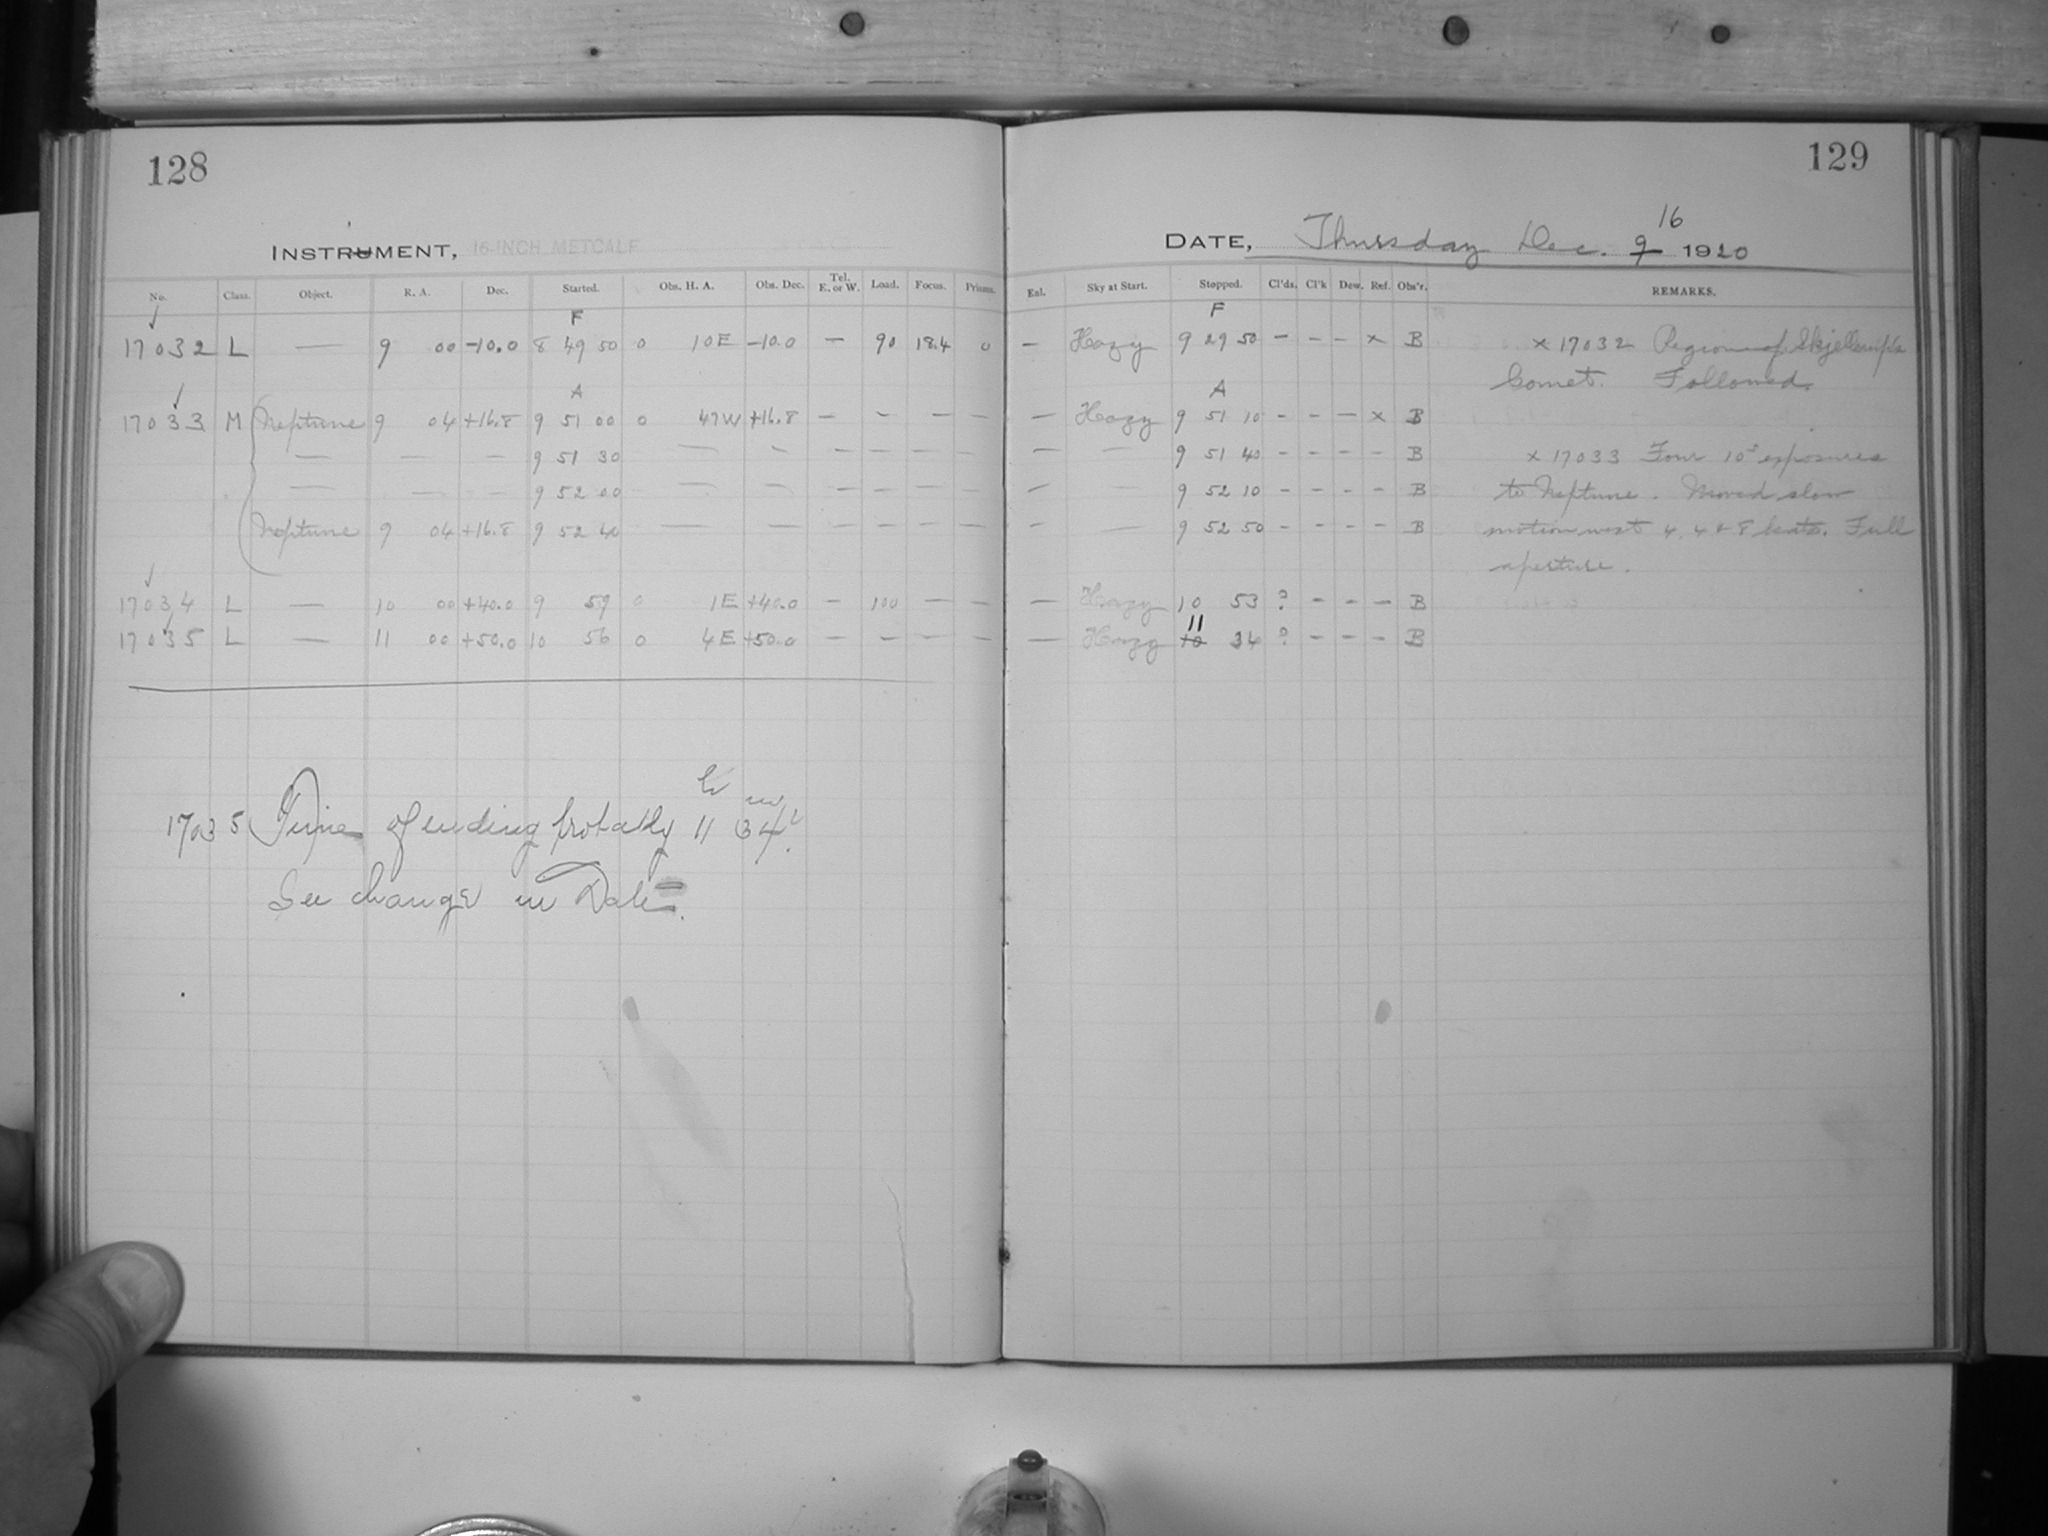 128
INSTRUMENT, 16-INCH METCALF
No. Class. Object. R. A. Dec. Started. Obs. H. A. Obs. Dec. Tel. E. or W. Load. Focus. Prisms.
F
17032 L — 9 00 -10.0 8 49 50 0 10E -10.0 — 90 18.4 0
A
17033 M Neptune 9 04 +16.8 9 51 00 0 47W +16.8 — — — —
— — — 9 51 30 — — — — — —
— — — 9 52 00 — — — — — —
Neptune 9 04 +16.8 9 52 40 — — — — — —
17034 L — 10 00 +40.0 9 59 0 1E +40.0 — 100 — —
17035 L — 11 00 +50.0 10 56 0 4E +50.0 — — — —
17035 Time of ending probably 11 h 34 m.
See change in Date.
129
DATE, Thursday Dec. 9 16 1920
Enl. Sky at Start. Stopped. Cl'ds. Cl'k Dew. Ref. Obs'r. REMARKS.
F
— Hazy 9 29 50 — — — x B x 17032 Region of Skjellerup's
Comet. Followed.
A
— Hazy 9 51 10 — — — x B
— — 9 51 40 — — — — B x 17033 Four 10s exposures
— — 9 52 10 — — — — B to Neptune. Moved slow
— — 9 52 50 — — — — B motion west 4, 4 & 8 beats. Full
aperture.
— Hazy 10 53 ? — — — B
— Hazy 10 11 34 ? — — — B